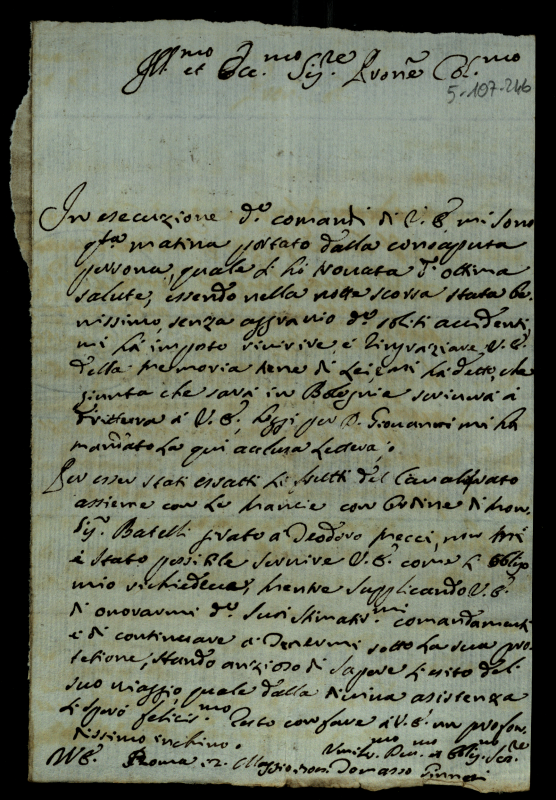 Ill.mo et Ecc.mo Sig.re Pron͠e Col.mo
5-107-246
In esecuzione d.i comandi di V.E. mi sono
q͠ta matina portato dalla consaputa
persona, quale l'hò trovata d'ottima
salute, essendo nella notte scorsa stata be-
nissimo, senza aggravio d.i soliti accidenti,
mi hà imposto riverire e ringraziare V.E.
della memoria tiene di Lei, hà detto, che
giunta che sarà in Bologna scriverà à
drittura à V.E. hoggi per D. Giovanni mi hà
mandato la qui acclusa lettera;
Per esser stati esatti li frutti del Cavalierato
assieme con le mancie con ordine di Mon-
Sig.r Batelli
è stato possibile servire V.E. come l'obligo
mio richiedeva, mentre supplicando V.E.
di onorarmi d.i suoi stimatis.mi comandamenti
e di continuare à tenermi sotto la sua pro-
tetione, stando anzioso di sapere l'esito del
suo viaggio, quale dalla divina asistenza
lo spero felicis.mo Resto con fare à V.E. un profon-
dissimo inchino.
V.E. Roma 12. Maggio Umilis.mo Dev.mo et Oblig.mo Ser.re
Tomasso